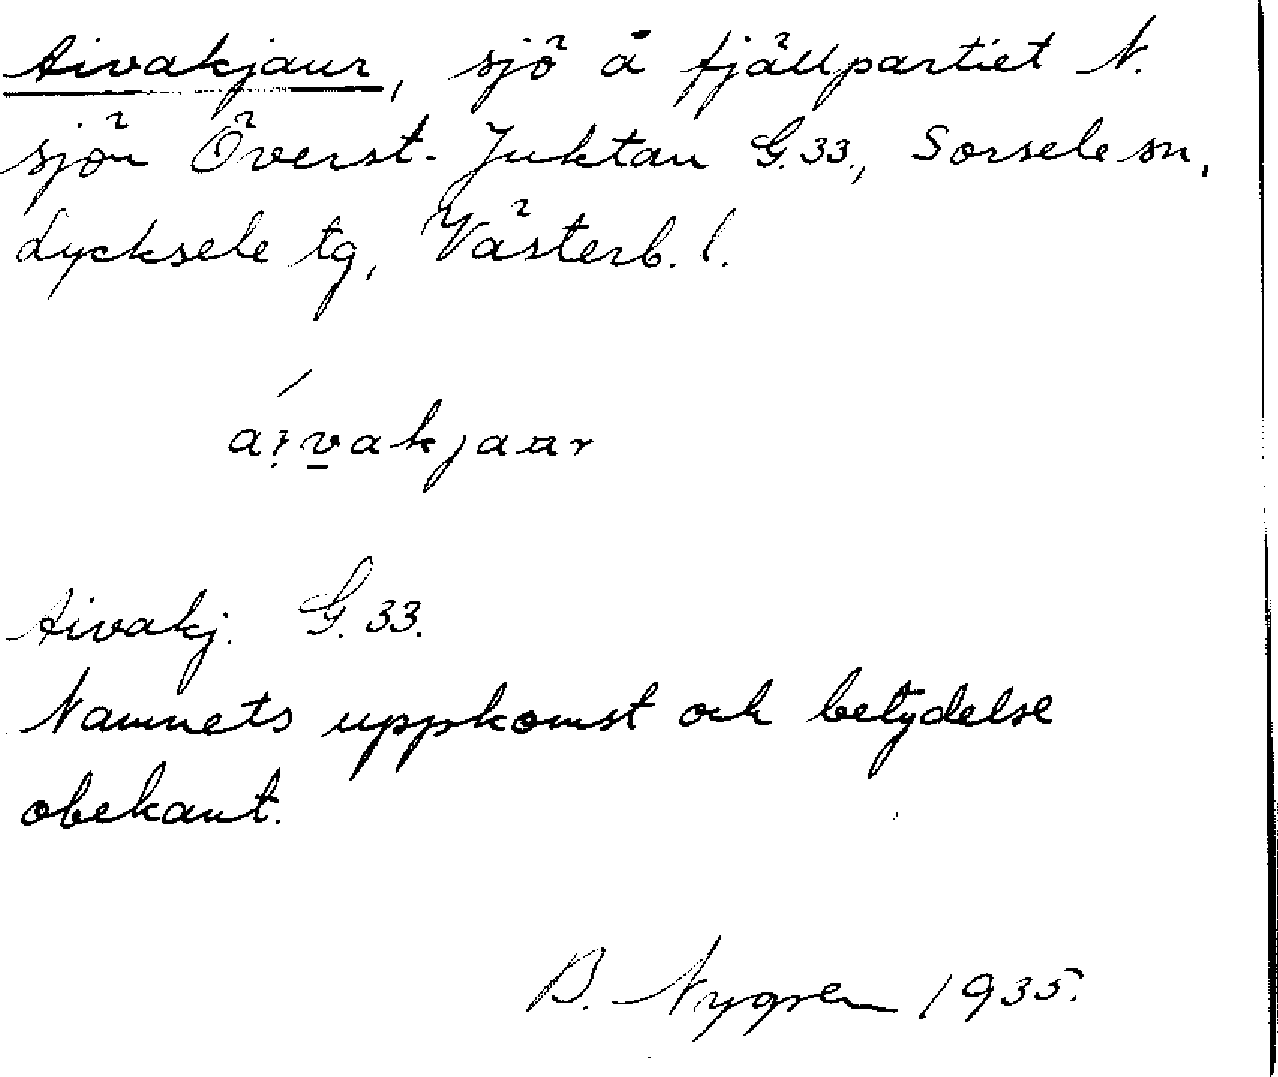 Aivakjaur, sjö å fjällpartiet N.
sjön Överst-Juktan G.33., Sorsele sn,
Lycksele tg, Västerb. l.
áivakjaur
Aivakj. G. 33.
Namnets uppkomst och betydelse
obekant.
B. Nygren 1935.